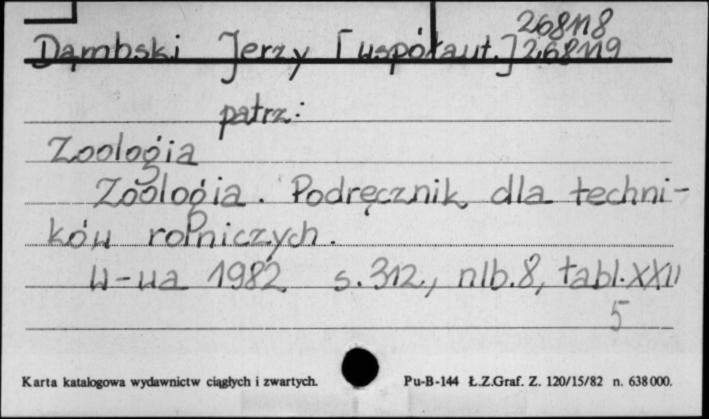 268118
Dąmbski Jerzy [współaut.] 268119
patrz:
Zoologia
Zoologia. Podręcznik dla techni-
ków rolniczych.
W-wa 1982 s. 312, nlb. 8, tabl. XXII
5
Karta katalogowa wydawnictw ciągłych i zwartych. Pu-B-144 Ł.Z.Graf. Z. 120/15/82 n. 638000.